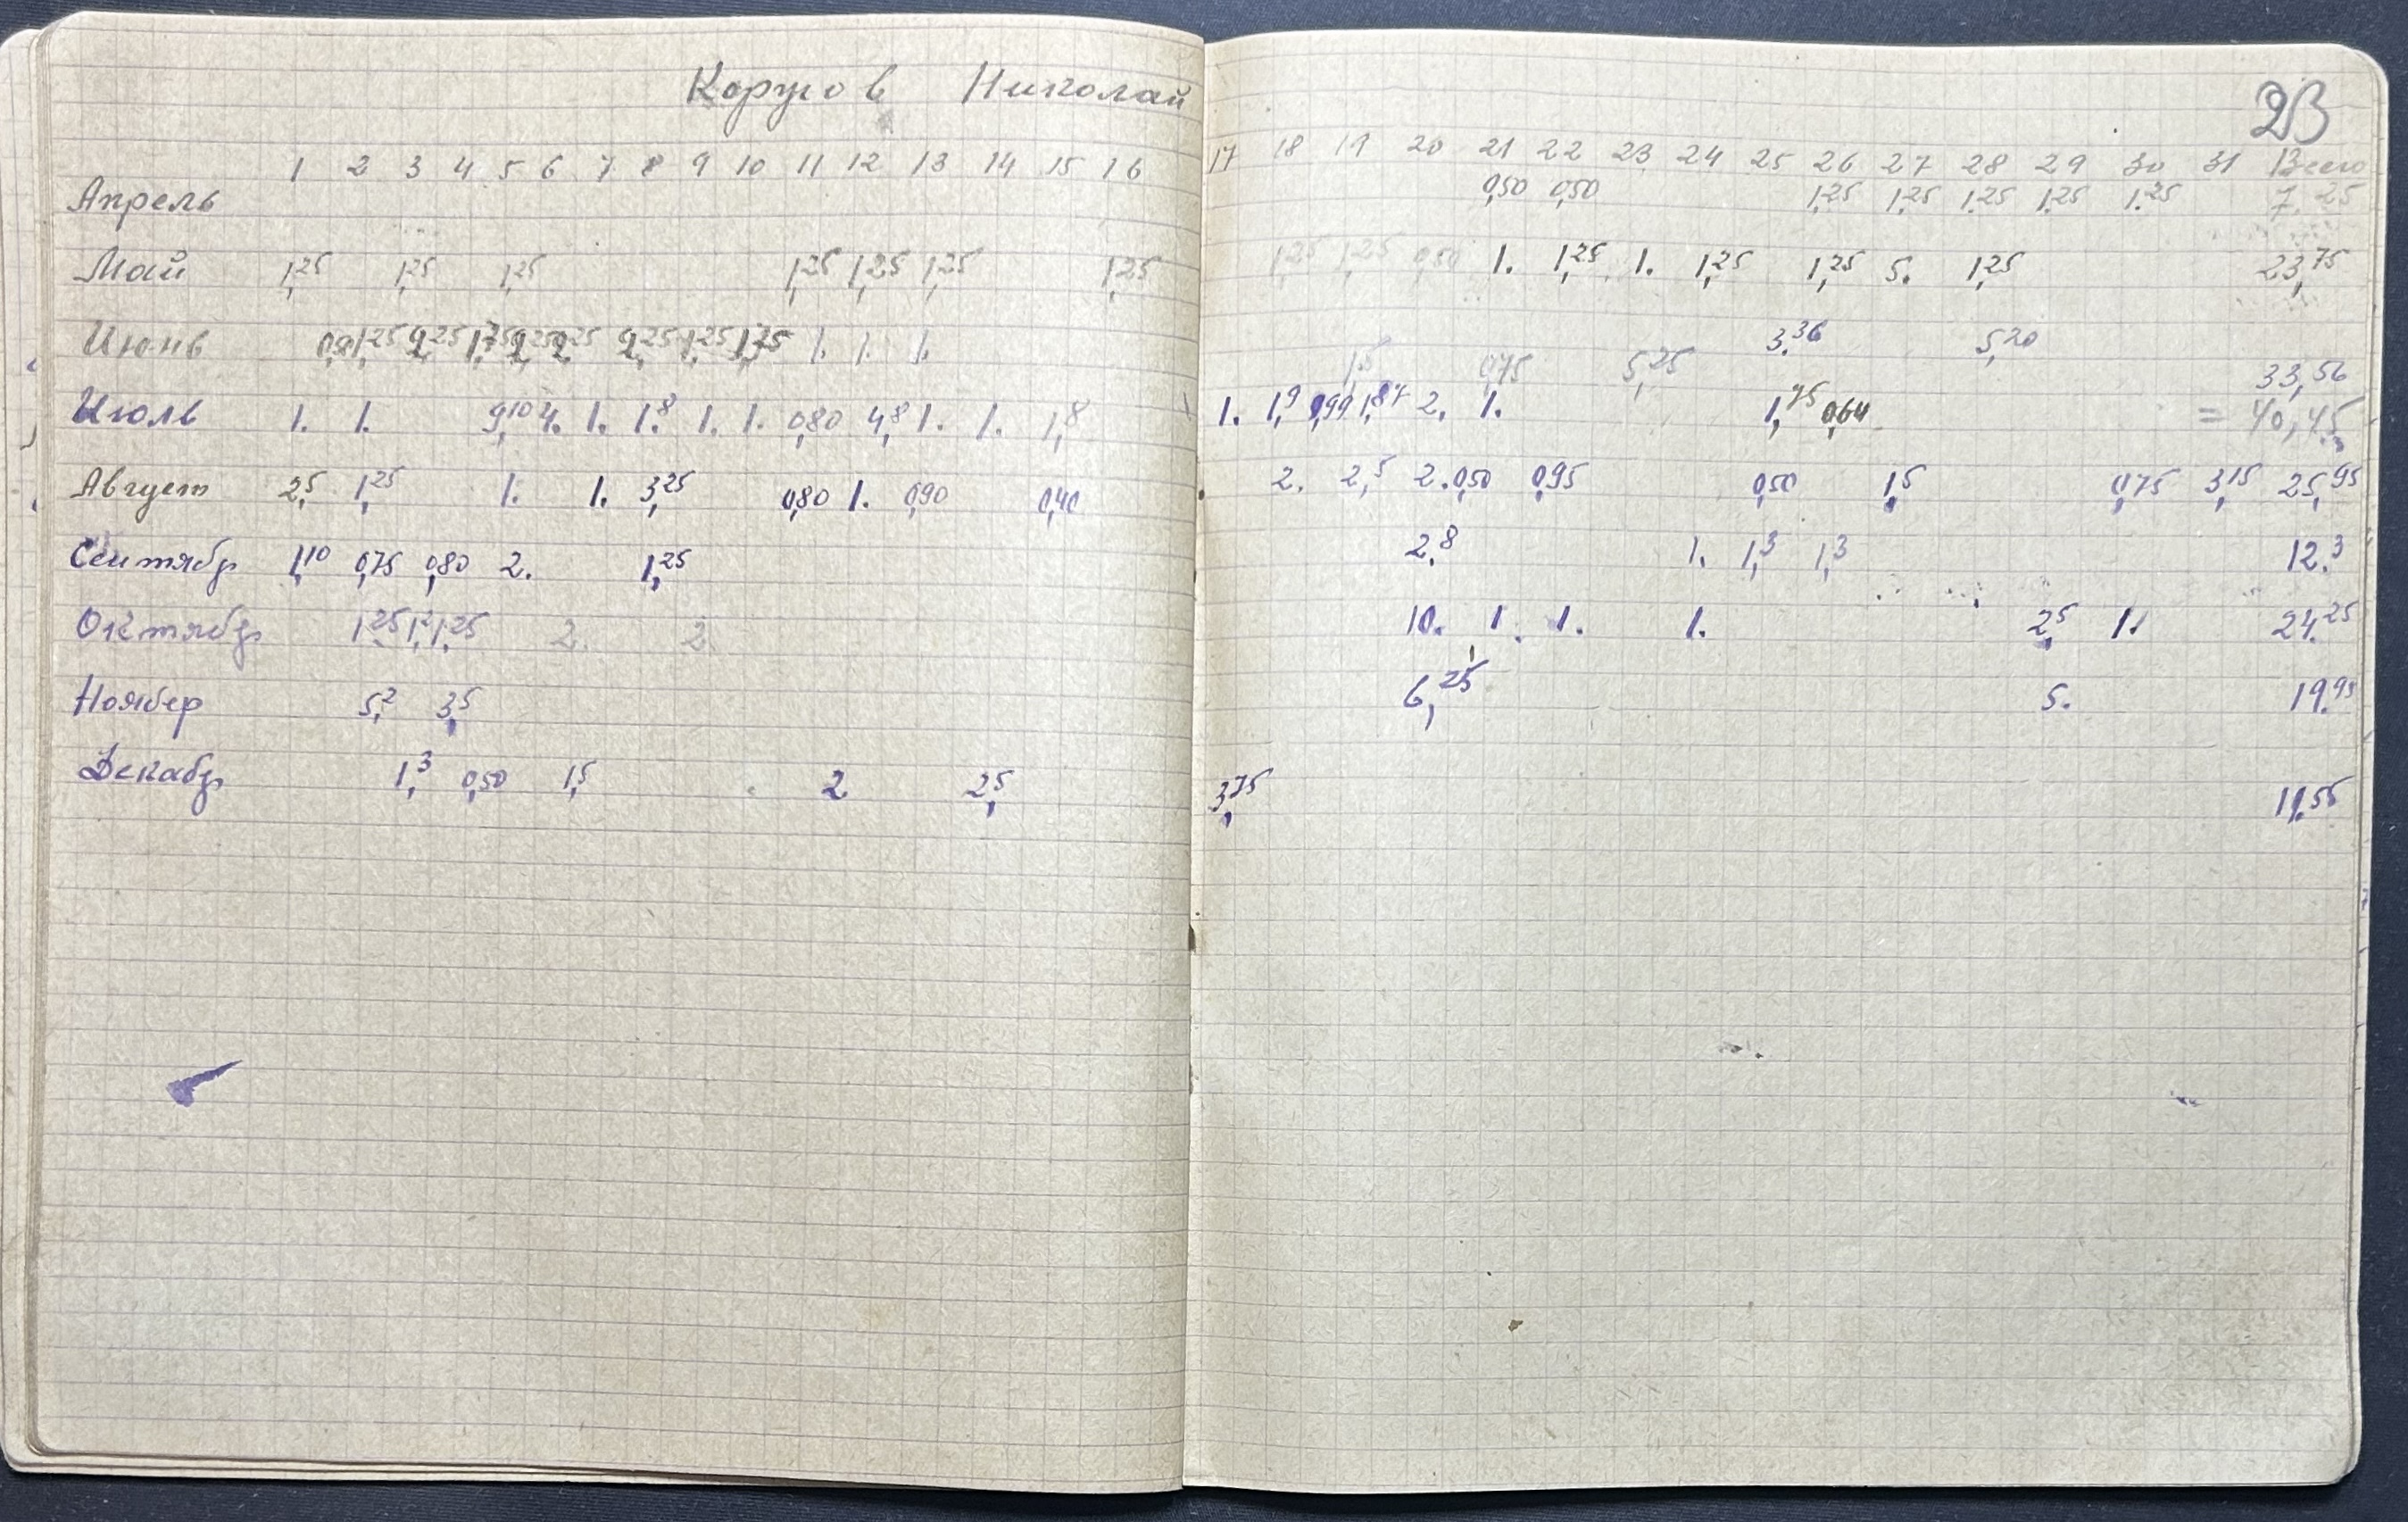 Корунов Николай 23
1 2 3 4 5 6 7 8 9 10 11 12 13 14 15 16 17 18 19 20 21 22 23 24 25 26 27 28 29 30 31 Всего
Апрель 0,50 0,50 1,25 1,25 1,25 1,25 1,25 7.25
Май 1,25 1,25 1,25 1,25 1,25 1,25 1,25 1,25 1,25 0,50 1. 1,25 1. 1,25 1,25 5. 1,25 23,75
Июнь 1,25 2,25 1,75 2,25 2,25 2,25 1,25 1,75 1. 1. 1. 1,5 0,75 5,25 3,36 5,20 33,56
Июль 1. 1. 9,10 4. 1. 1.8 1. 1. 0,80 4,8 1. 1. 1,8 1. 1,9 0,99 1,87 2. 1. 1,75 0,64 = 40,45
Август 2,5 1,25 1. 1. 3,25 0,80 1. 0,90 0,40 2. 2,5 2. 0,50 0,95 0,50 1,5 0,75 3,15 25,95
Сентябр 1,10 0,75 0,80 2. 1,25 2,8 1. 1,3 1,3 12.3
Октябр 1,25 1,2 1,25 2. 2. 10. 1. 1. 1. 2,5 1. 24.25
Ноябер 5,2 3,5 6,25 5. 19.95
Декабр 1,3 0,50 1,5 2 2,5 3,75 11.55